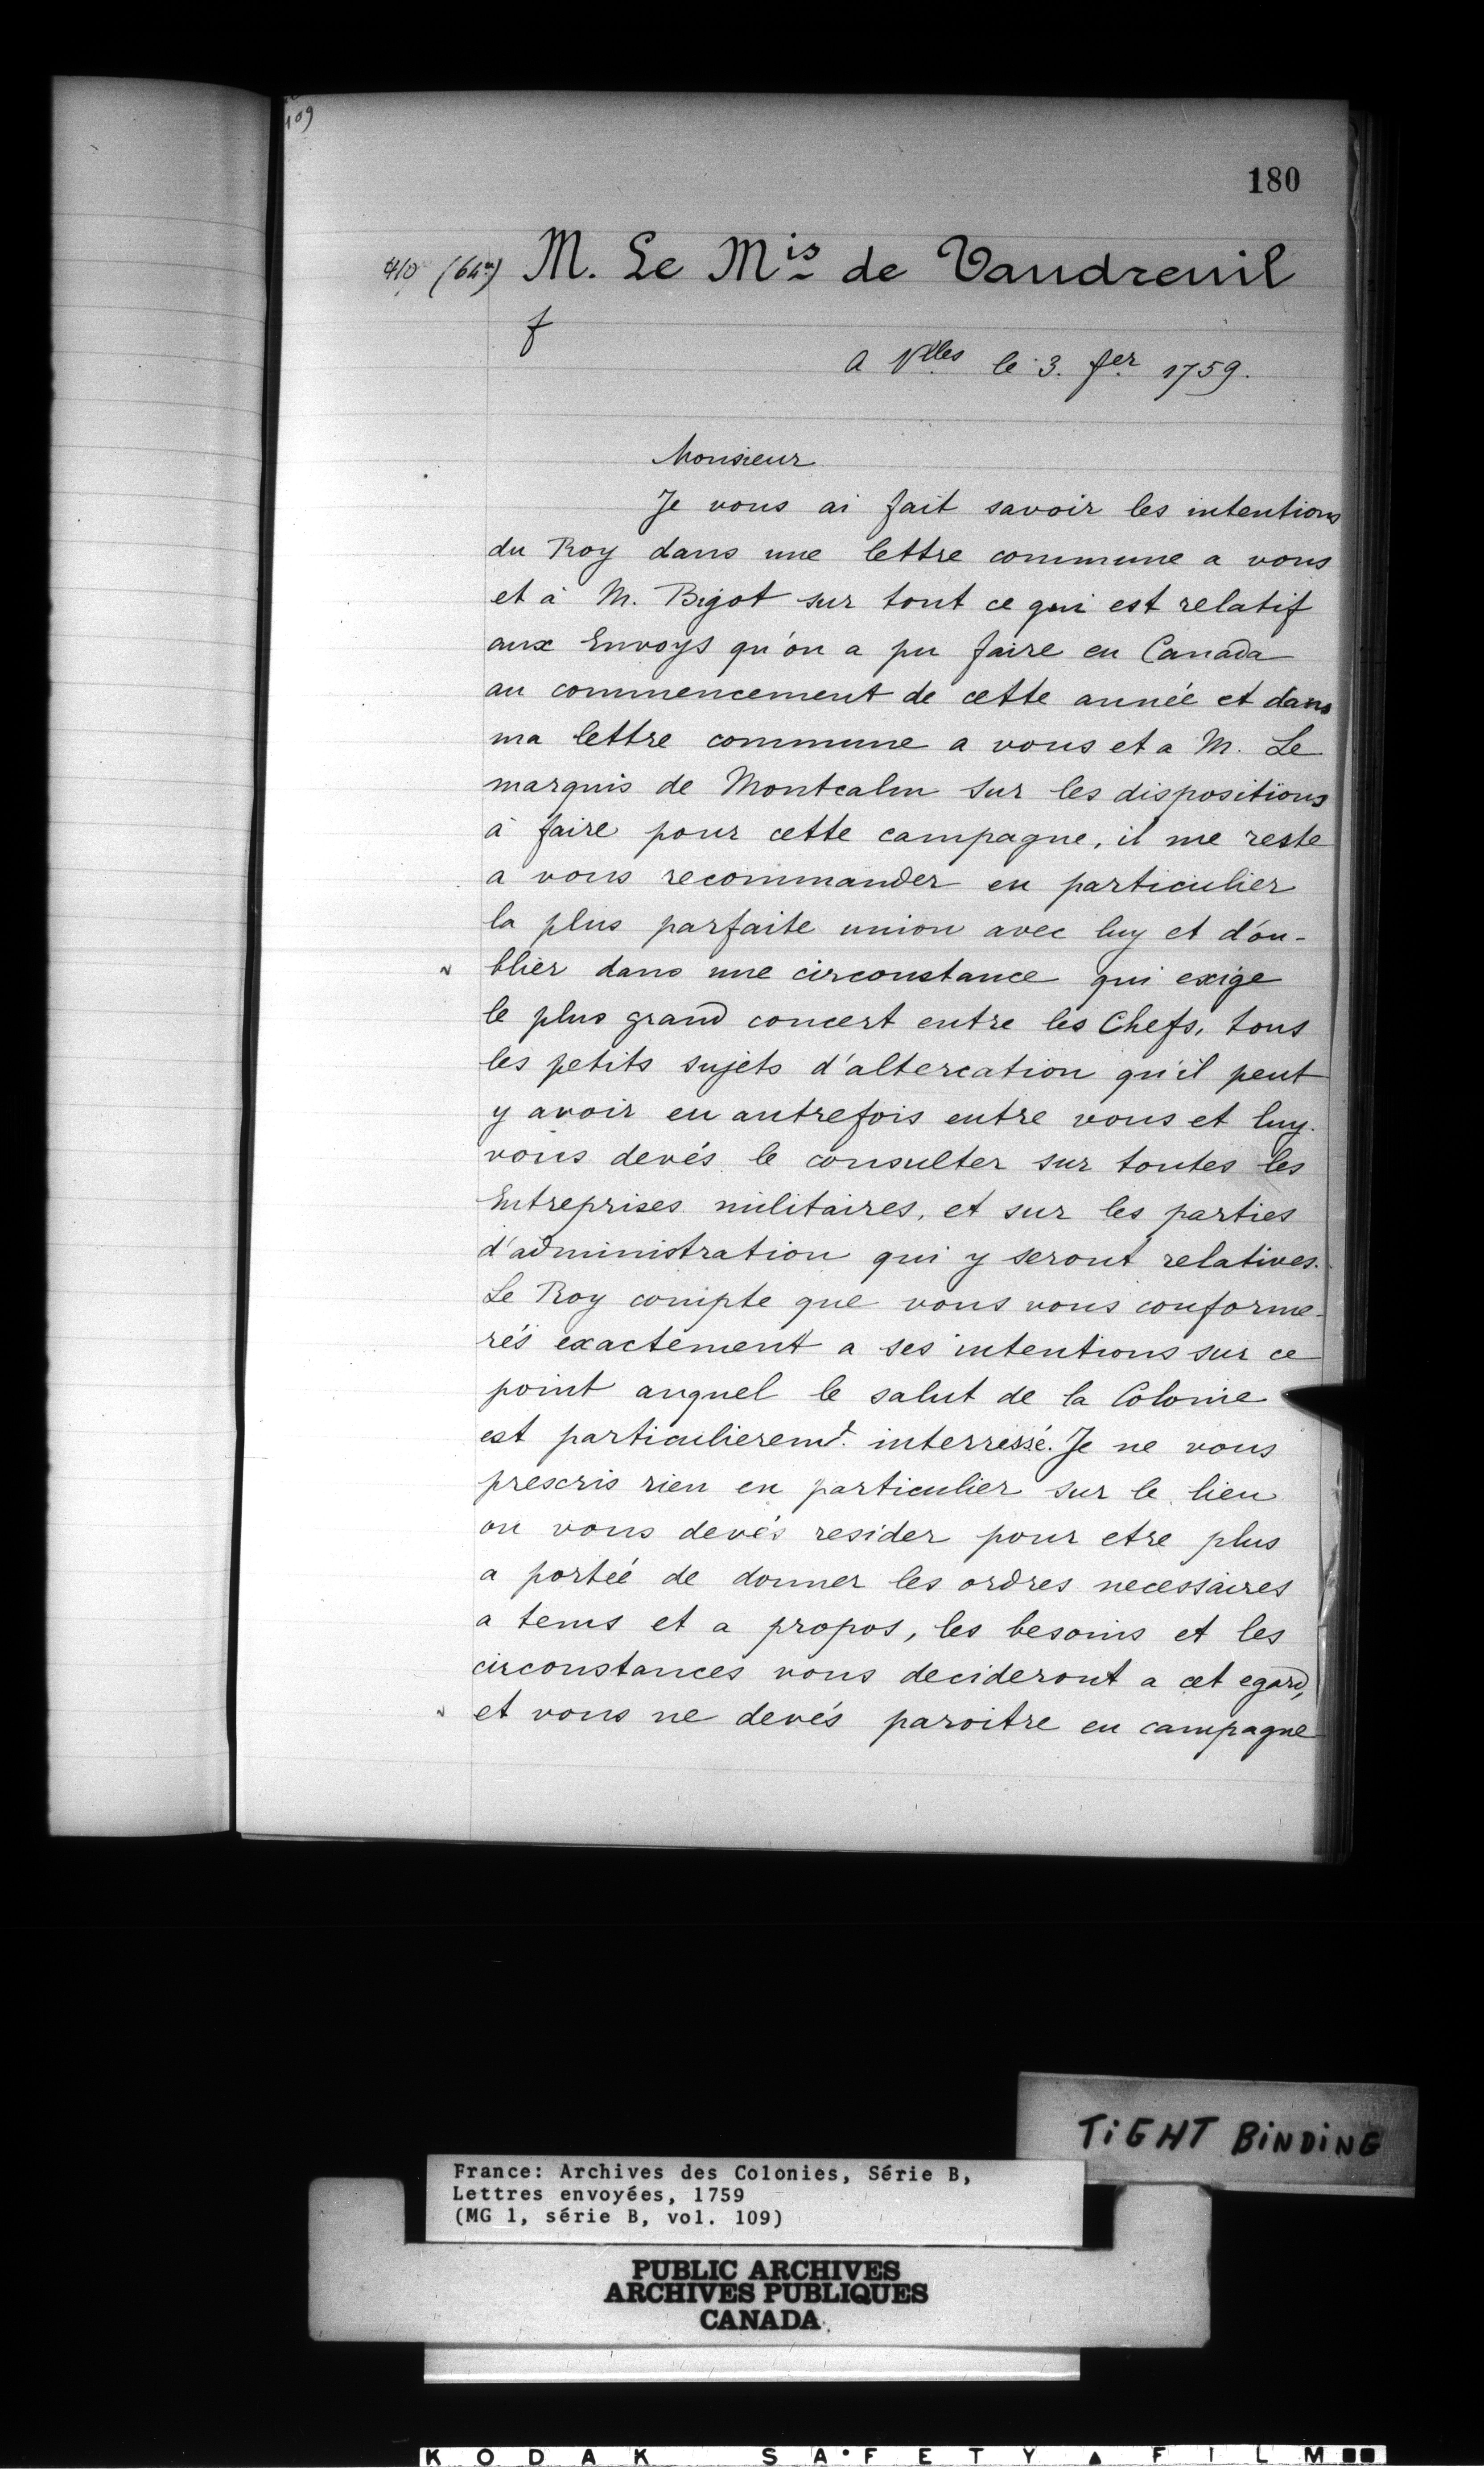 109
180
410 (64.) M. Le Mis de Vaudreuil
f
A Vlles le 3. fer 1759.
Monsieur
Je vous ai fait savoir les intentions
du Roy dans une lettre commune a vous
et à M. Bigot sur tout ce qui est relatif
aux Envoys qu'on a pu faire en Canada
au commencement de cette année et dans
ma lettre commune a vous et a M. Le
marquis de Montcalm sur les dispositions
à faire pour cette campagne, il me reste
a vous recommander en particulier
la plus parfaite union avec luy et d'ou-
blier dans une circonstance qui exige
le plus grand concert entre les Chefs, tous
les petits sujets d'altercation qu'il peut
y avoir eu autrefois entre vous et luy.
vous devés le consulter sur toutes les
Entreprises militaires, et sur les parties
d'administration qui y seront relatives.
Le Roy compte que vous vous conforme-
rés exactement a ses intentions sur ce
point auquel le salut de la Colonie
est particulieremt. interressé. Je ne vous
prescris rien en particulier sur le lieu
ou vous devés resider pour etre plus
a portéé de donner les ordres necessaires
a tems et a propos, les besoins et les
circonstances vous decideront a cet egard,
et vous ne devés paroitre en campagne
TIGHT BINDING
France: Archives des Colonies, Série B,
Lettres envoyées, 1759
(MG 1, série B, vol. 109)
PUBLIC ARCHIVES
ARCHIVES PUBLIQUES
CANADA
KODAK SAFETY FILM